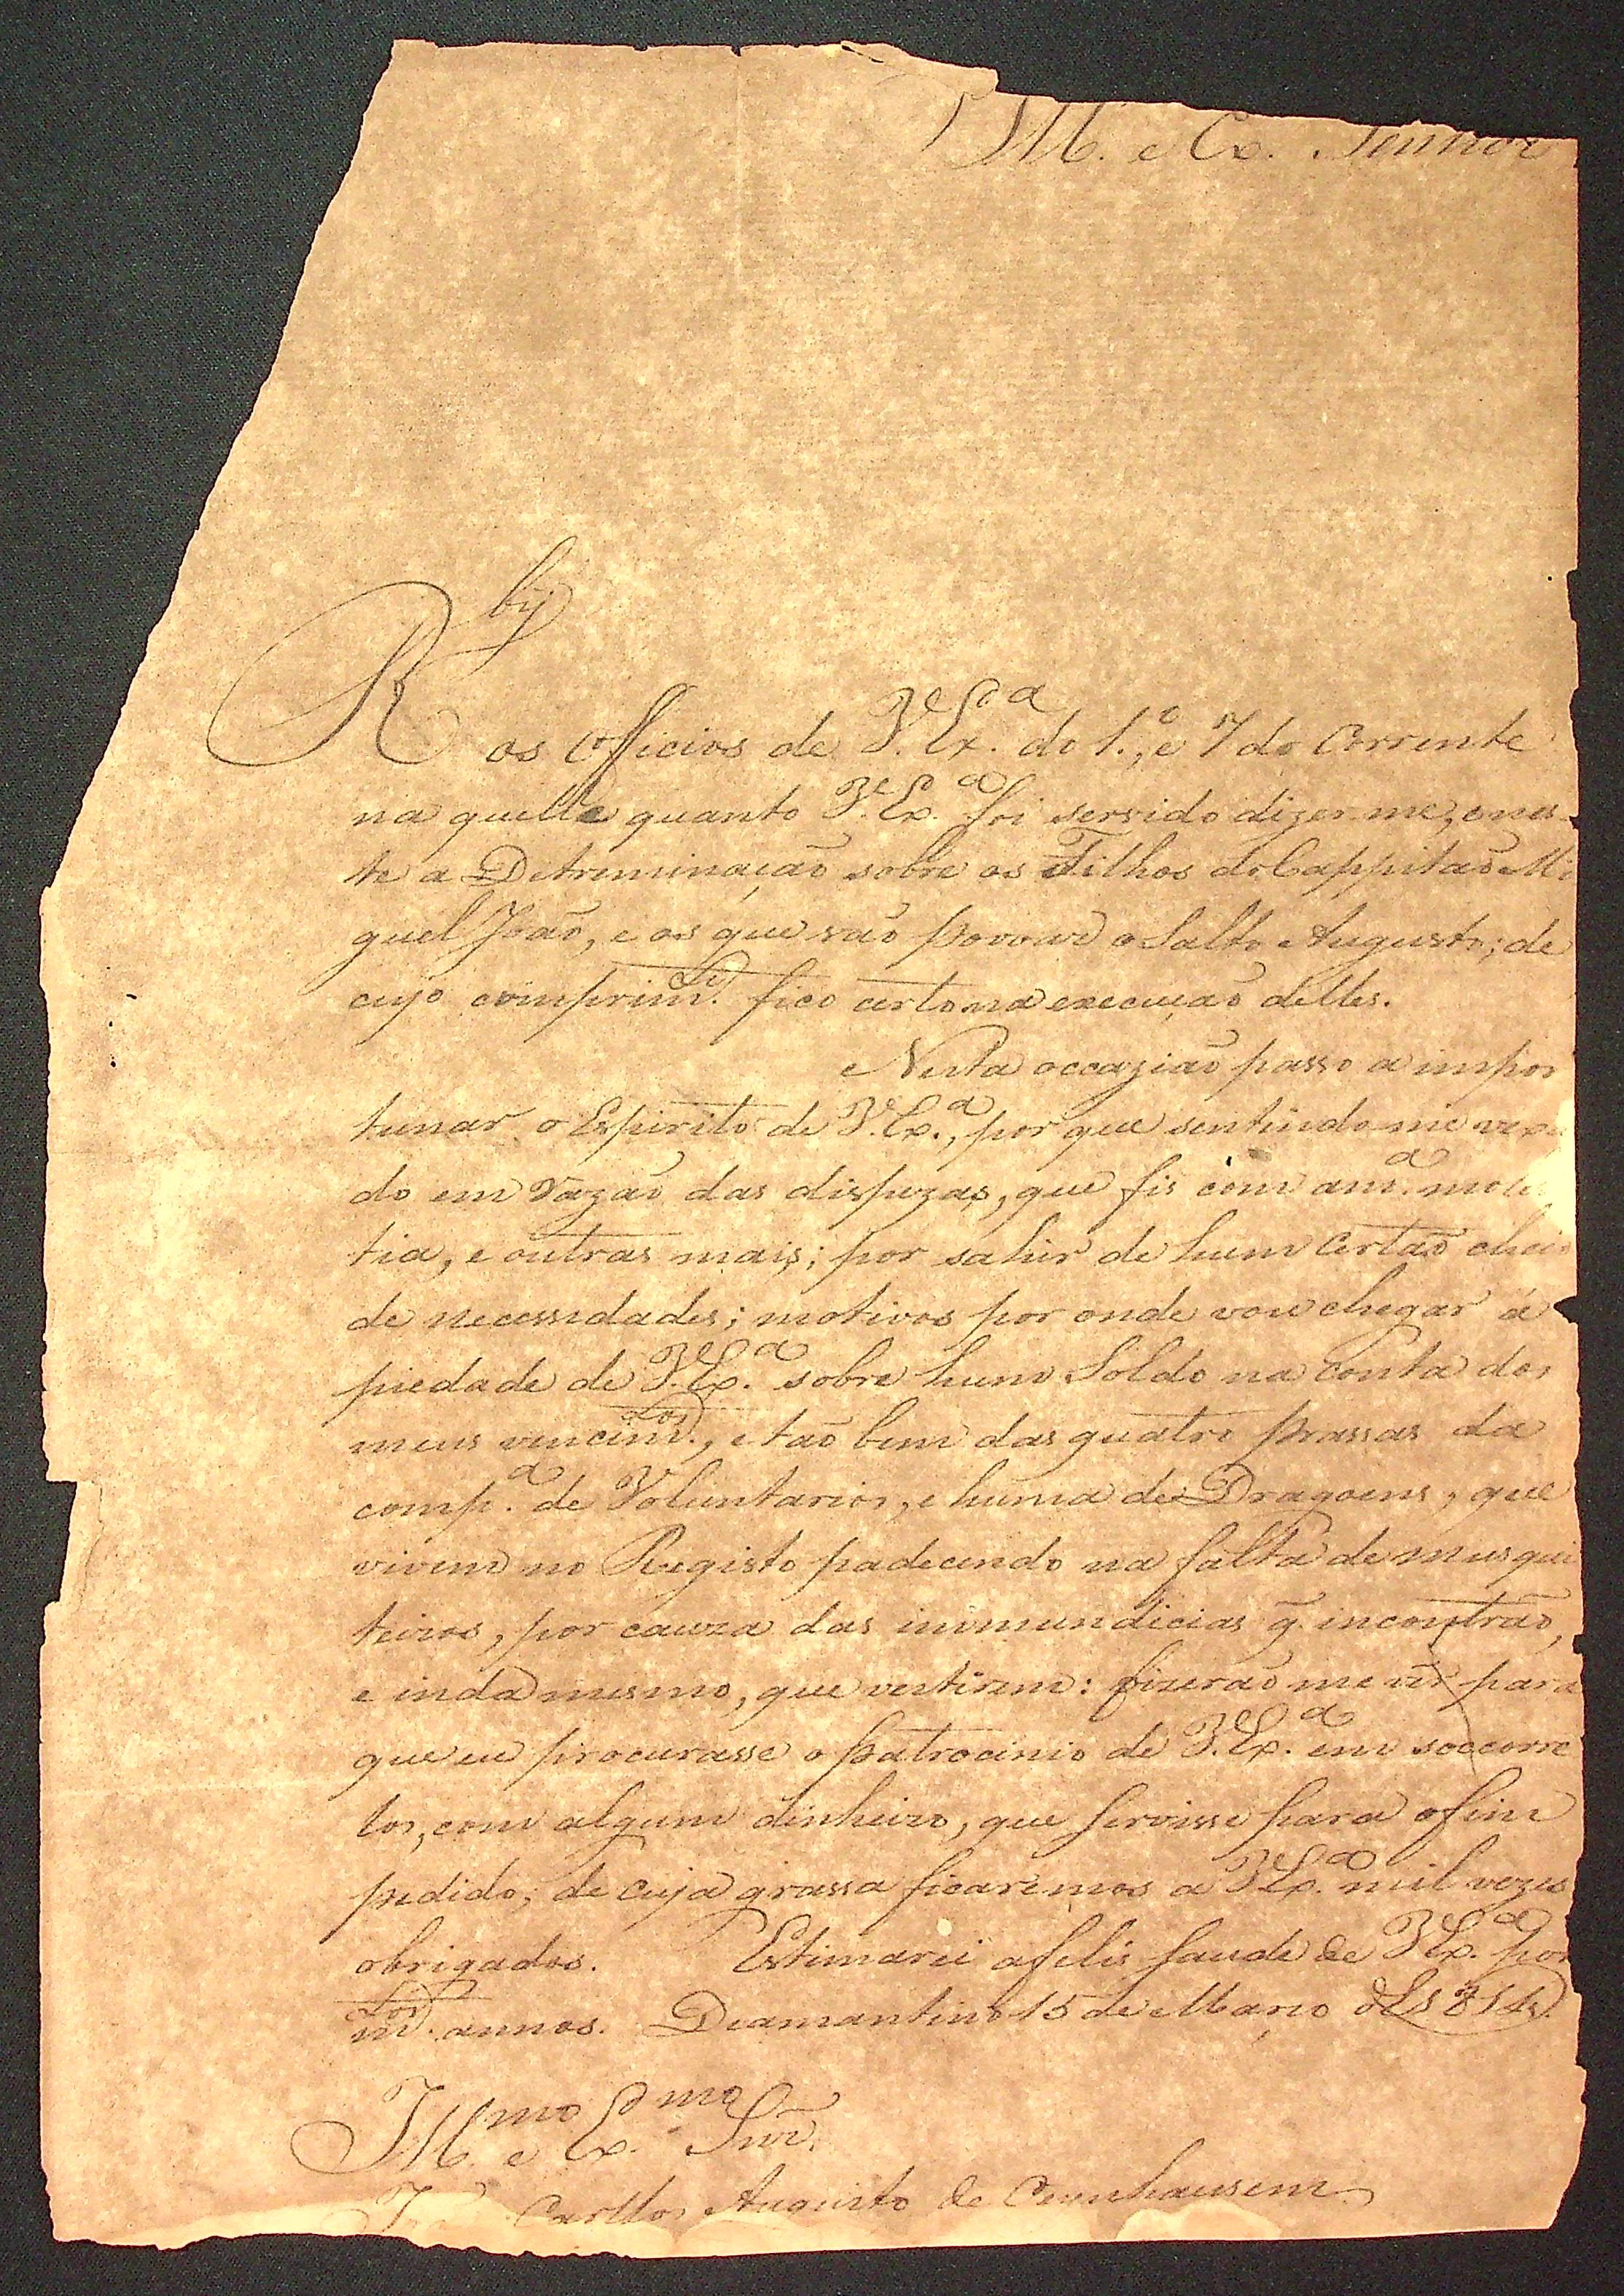 Ill. e Ex. Senhor
Rbÿ
os Officios de V. Ex.ª do 1.º, e 7 do Corrente
na quelle quanto V. Ex.ª foi servido dizer-me, e nes-
te a Detreminação sobre os Filhos do Cappitão Mi
guel João, e os que vão povoar o Salto Augusto; de
cujo comprim.to fico certo na execução delles.
Nesta occazião passo a impor
tunar o Espirito de V. Ex.ª, por que sentindo-me vexa
do em razão das dispezas, que fis com a m.ª moles
tia, e outras mais; por sahir de hum Certão cheio
de necessidades; motivos por onde vou chegar á
piedade de V. Ex.ª sobre hum Soldo na conta dos
meus vencim.tos, e tão bem das quatro prassas da
comp.ª de Voluntarios, e huma de Dragoens, que
vivem no Registo padecendo na falta de musqui
teiros, por cauza das inmundicias q̃. incontrão,
e inda mesmo, que vestirem: fizerão me vêr para
que eu procurasse o patrocinio de V. Ex.ª em soccorre
los, com algum dinheiro, que servisse para o fim
pedido; de cuja grassa ficaremos a V. Ex.ª mil vezes
obrigados. Estimarei a felis saude de V. Ex.ª por
m.tos annos. Deamantino 15 de Março de 1814
Ill.mo e Ex.mo Snr.
Carllos Augusto de Oeunhausem